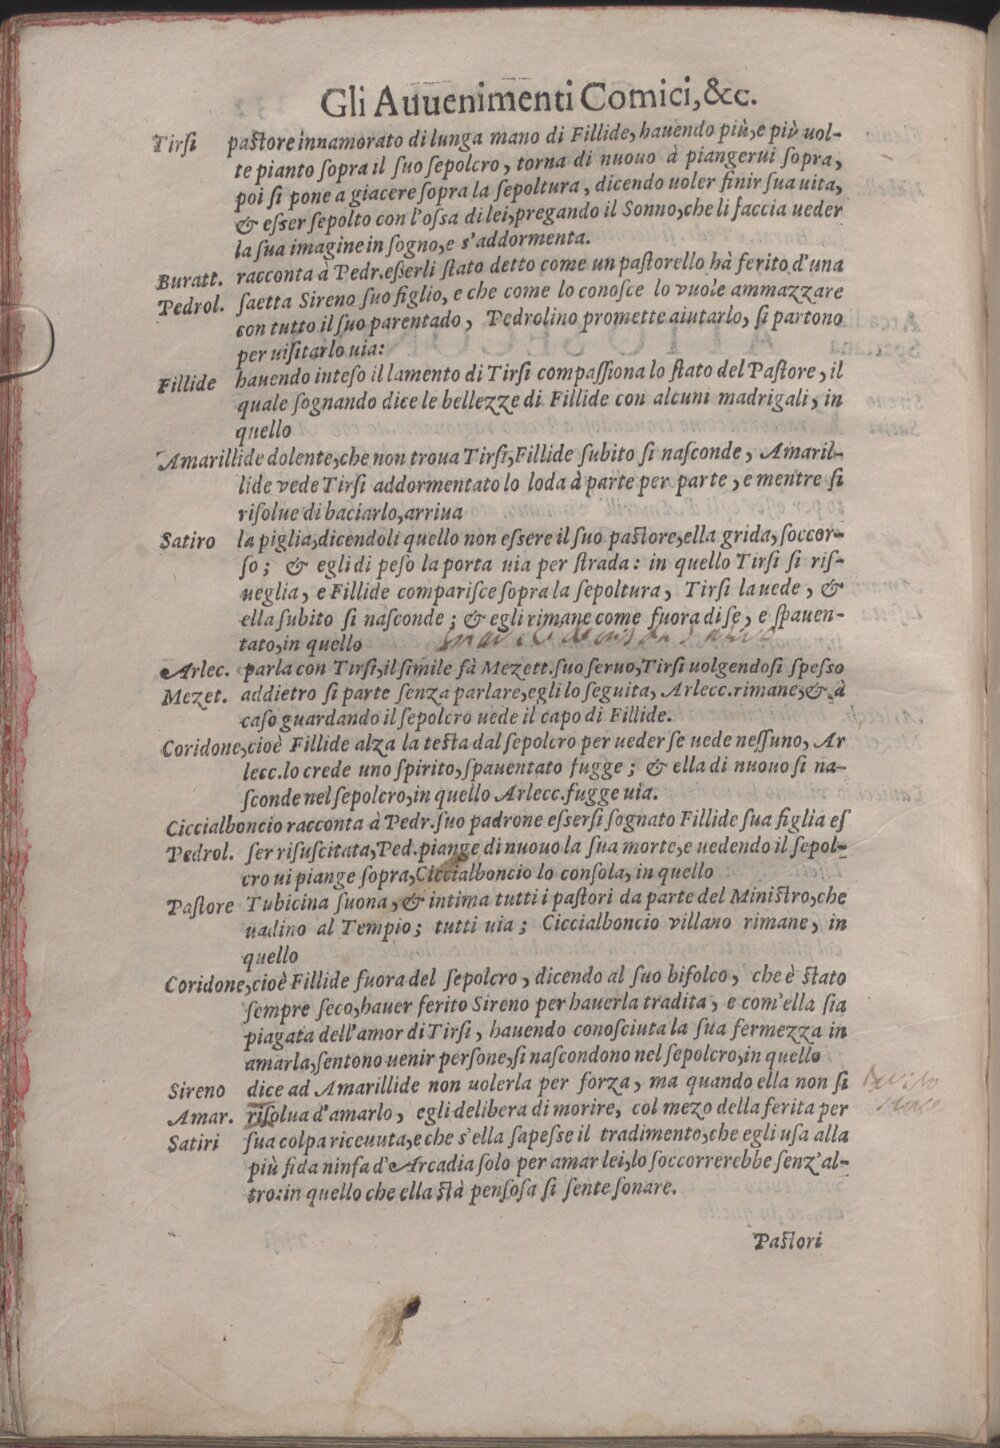 Gli Auuenimenti Comici, &c.
Tirsi paſtore innamorato di lunga mano di Fillide, hauendo più, e più uol-
te pianto ſopra il ſuo ſepolcro, torna di nuouo à piangerui ſopra,
poi ſi pone a giacere ſopra la ſepoltura, dicendo uoler finir ſua uita,
& eſſer ſepolto con l'oſſa di lei, pregando il Sonno, che li faccia ueder
la ſua imagine in ſogno, e s'addormenta.
Buratt. racconta à Pedr. eſſerli ſtato detto come un paſtorello hà ferito d'una
Pedrol. ſaetta Sireno ſuo figlio, e che come lo conoſce lo vuole ammazzare
con tutto il ſuo parentado, Pedrolino promette aiutarlo, ſi partono
per uiſitarlo uia:
Fillide hauendo inteſo il lamento di Tirſi compaſſiona lo ſtato del Paſtore, il
quale ſognando dice le bellezze di Fillide con alcuni madrigali, in
quello
Amarillide dolente, che non troua Tirſi, Fillide ſubito ſi naſconde, Amaril-
lide vede Tirſi addormentato lo loda à parte per parte, e mentre ſi
riſolue di baciarlo, arriua
Satiro la piglia, dicendoli quello non eſſere il ſuo paſtore, ella grida, ſoccor-
ſo; & egli di peſo la porta uia per ſtrada: in quello Tirſi ſi riſ-
ueglia, e Fillide compariſce ſopra la ſepoltura, Tirſi la uede, &
ella ſubito ſi naſconde; & egli rimane come fuora di ſe, e ſpauen-
tato, in quello
Arlec. parla con Tirſi, il ſimile fà Mezett. ſuo ſeruo, Tirſi uolgendoſi ſpeſſo
Mezet. addietro ſi parte ſenza parlare, egli lo ſeguita, Arlecc. rimane, & à
caſo guardando il ſepolcro uede il capo di Fillide.
Coridone, cioè Fillide alza la teſta dal ſepolcro per ueder ſe uede neſſuno, Ar
lecc. lo crede uno ſpirito, ſpauentato fugge; & ella di nuouo ſi na-
ſconde nel ſepolcro, in quello Arlecc. fugge uia.
Ciccialboncio racconta à Pedr. ſuo padrone eſſerſi ſognato Fillide ſua figlia eſ
Pedrol. ſer riſuſcitata, Ped. piange di nuouo la ſua morte, e uedendo il ſepol-
cro ui piange ſopra, Ciccialboncio lo conſola, in quello
Paſtore Tubicina ſuona, & intima tutti i paſtori da parte del Miniſtro, che
uadino al Tempio; tutti uia; Ciccialboncio villano rimane, in
quello
Coridone, cioè Fillide fuora del ſepolcro, dicendo al ſuo bifolco, che è ſtato
ſempre ſeco, hauer ferito Sireno per hauerla tradita, e com'ella ſia
piagata dell'amor di Tirſi, hauendo conoſciuta la ſua fermezza in
amarla, ſentono uenir perſone, ſi naſcondono nel ſepolcro, in quello
Sireno dice ad Amarillide non uolerla per forza, ma quando ella non ſi
Amar. riſolua d'amarlo, egli delibera di morire, col mezo della ferita per
Satiri ſua colpa riceuuta, e che s'ella ſapeſſe il tradimento, che egli uſa alla
più fida ninfa d'Arcadia ſolo per amar lei, lo ſoccorrerebbe ſenz'al-
tro: in quello che ella ſtà penſoſa ſi ſente ſonare.
Paſtori